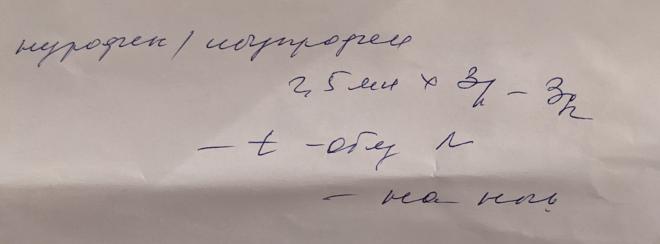 нурофен / ибупрофен
2,5 мл х 3р - 3д
- t - N
- на ночь